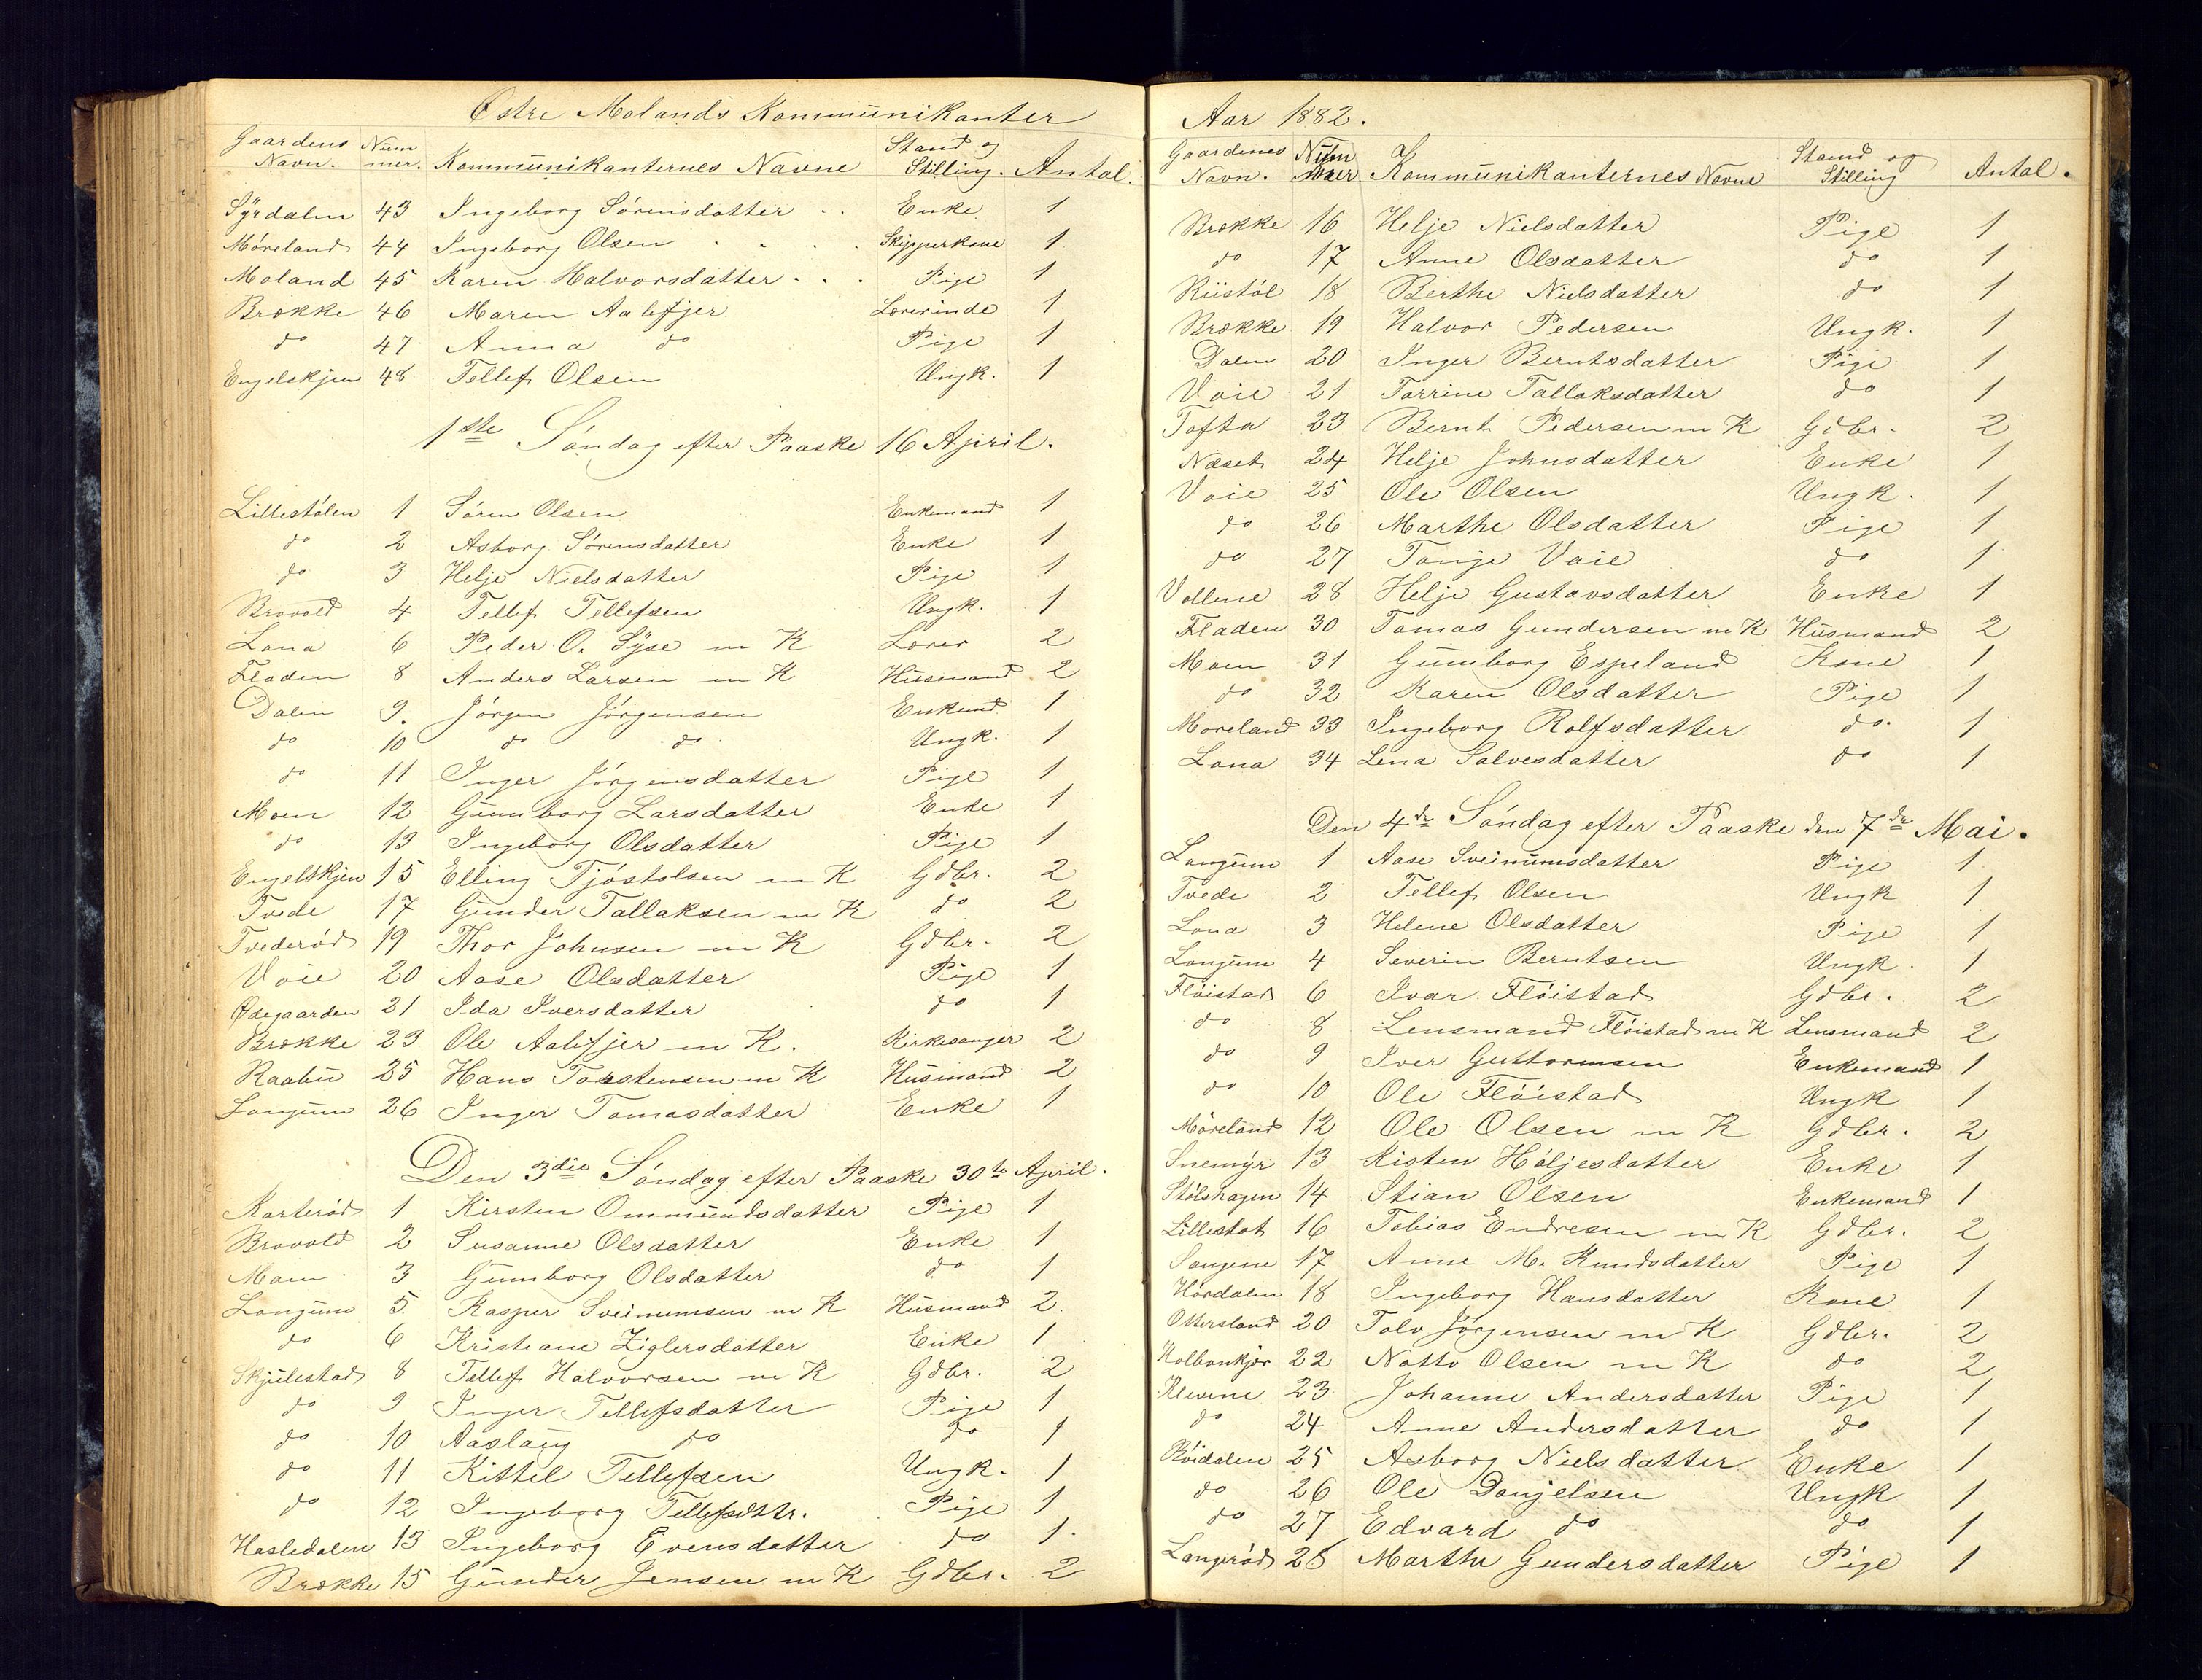 Østre Molands Kommunikanter
Gaardens Navn. Nummer. Kommunikanternes Navne Stand og Stilling. Antal.
Syrdalen 43 Ingeborg Sørensdatter . . Enke 1
Møreland 44 Ingeborg Olsen . . . . Skipperkone 1
Moland 45 Karen Halvorsdatter . . . Pige 1
Brække 46 Maren Aalefjer Lærerinde 1
do 47 Anna do Pige 1
Engelskjen 48 Tellef Olsen Ungk. 1
1ste Søndag efter Paaske 16 April.
Lillestølen 1 Søren Olsen Enkemand 1
do 2 Asborg Sørensdatter Enke 1
do 3 Helje Nielsdatter Pige 1
Brovold 4 Tellef Tellefsen Ungk. 1
Lona 6 Peder O. Syse m K Lærer 2
Fladen 8 Anders Larsen m K Husmand 2
Dalen 9. Jørgen Jørgensen Enkemd 1
do 10 do do Ungk. 1
do 11 Inger Jørgensdatter Pige 1
Moen 12 Gunborg Larsdatter Enke 1
do 13 Ingeborg Olsdatter Pige 1
Engelskjen 15 Elling Tjøstolsen m K Gdbr. 2
Tvede 17 Gunder Tallaksen m K do 2
Tvederød 19 Thor Johnsen m K Gdbr. 2
Voie 20 Aase Olsdatter Pige 1
Ødegaarden 21 Ida Iversdatter do 1
Brække 23 Ole Aalefjer m K. Kirkesanger 2
Raabu 25 Hans Torstensen m K Husmand 2
Longum 26 Inger Tomasdatter Enke 1
Den 3die Søndag efter Paaske 30te April.
Karterød 1 Kirsten Ommundsdatter Pige 1
Brovold 2 Susanne Olsdatter Enke 1
Moen 3 Gunborg Olsdatter do 1
Longum 5 Kasper Sveinumsen m K Husmand 2
do 6 Kristiane Ziglersdatter Enke 1
Skjulestad 8 Tellef Halvorsen m K Gdbr. 2
do 9 Inger Tellefsdatter Pige 1
do 10 Aaslaug do do 1
do 11 Kittel Tellefsen Ungk. 1
do 12 Ingeborg Tellefsdttr. Pige 1
Hasledalen 13 Ingeborg Evensdatter do 1
Brække 15 Gunder Jensen m K Gdbr. 2
Aar 1882.
Gaardenes Navn. Nummer Kommunikanternes Navne Stand og Stilling Antal.
Brække 16 Helje Nielsdatter Pige 1
do 17 Anne Olsdatter do 1
Riistøl 18 Berthe Nielsdatter do 1
Brække 19 Halvor Pedersen Ungk. 1
Dalen 20 Inger Berntsdatter Pige 1
Voie 21 Torrine Tallaksdatter do 1
Tofta 23 Bernt Pedersen m K Gdbr. 2
Næset 24 Helje Johnsdatter Enke 1
Voie 25 Ole Olsen Ungk. 1
do 26 Marthe Olsdatter Pige 1
do 27 Tonje Voie do 1
Vollene 28 Helje Gustavsdatter Enke 1
Fladen 30 Tomas Gundersen m K Husmand 2
Moen 31 Gunborg Espeland Kone 1
do 32 Karen Olsdatter Pige 1
Moreland 33 Ingeborg Rolfsdatter do. 1
Lona 34 Lena Salvesdatter do 1
Den 4de Søndag efter Paaske den 7de Mai.
Longum 1 Aase Sveinumsdatter Pige 1
Tvede 2 Tellef Olsen Ungk 1
Lona 3 Helene Olsdatter Pige 1
Longum 4 Severin Berntsen Ungk. 1
Fløistad 6 Ivar Fløistad Gdbr. 2
do 8 Lensmand Fløistad m K Lensmand 2
do 9 Iver Guttormsen Enkemand 1
do 10 Ole Fløistad Ungk 1
Møreland 12 Ole Olsen m K Gdbr. 2
Snemyr 13 Kisten Høljesdatter Enke 1
Stølshagen 14 Stian Olsen Enkemand 1
Lillestøl 16 Tobias Endresen m K Gdbr. 2
Songene 17 Anne M. Knudsdatter Pige 1
Hørdalen 18 Ingeborg Hansdatter Kone 1
Ottersland 20 Tolv Jørgensen m K Gdbr. 2
Holbonkjær 22 Notto Olsen m K do 2
Klevene 23 Johanne Andersdatter Pige 1
do 24 Anne Andersdatter do 1
Røidalen 25 Asborg Nielsdatter Enke 1
do 26 Ole Danjelsen Ungk 1
do 27 Edvard do do 1
Langerød 28 Marthe Gundersdatter Pige 1